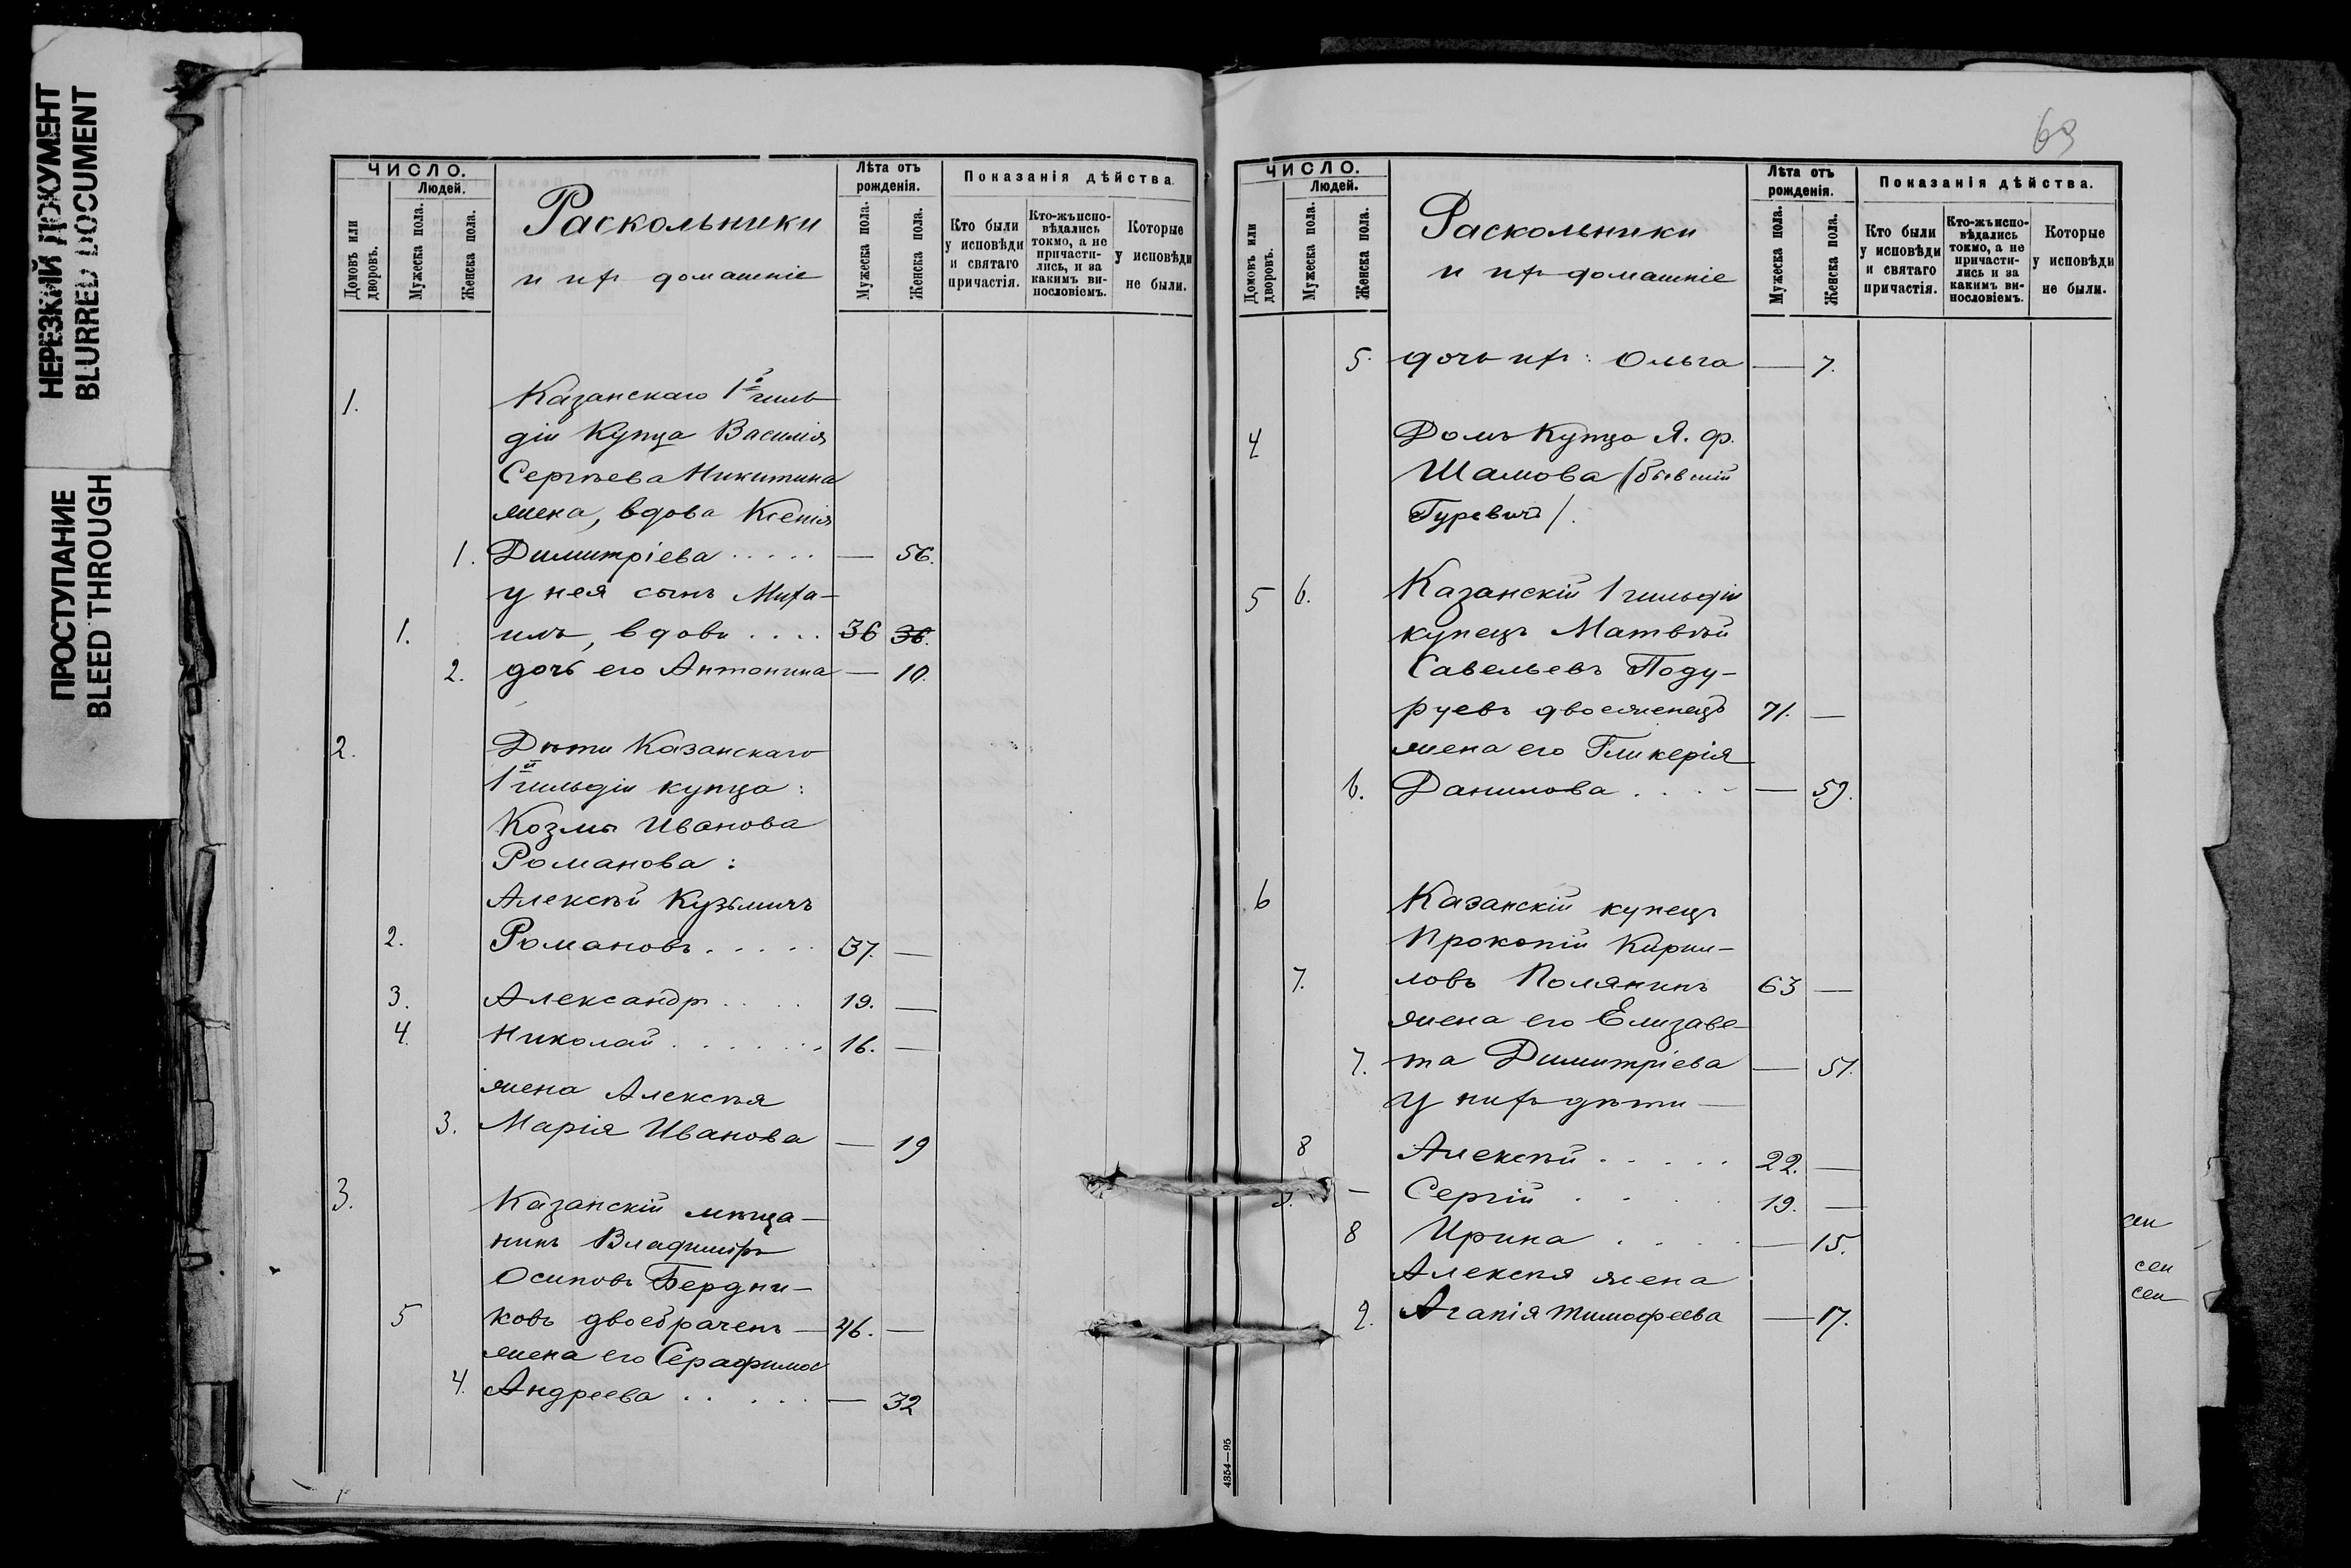 НЕРЕЗКИЙ ДОКУМЕНТ
BLURRED DOCUMENT
ПРОСТУПАНИЕ
BLEED THROUGH
ЧИСЛО.
Людей.
Домовъ или дворовъ.
Мужеска пола.
Женска пола.
Раскольники
и ихъ домашніе
Лѣта отъ рожденія.
Мужеска пола.
Женска пола.
Показанія дѣйства.
Кто были у исповѣди и святаго причастія.
Кто-жъ исповѣдались токмо, а не причастились, и за какимъ винословіемъ.
Которые у исповѣди не были.
1. Казанскаго 1й гиль-
діи Купца Василія
Сергѣева Никитина
жена, вдова Ксенія
1. Димитріева . . . . . — 56.
у нея сынъ Миха-
1. илъ, вдовъ . . . . 36 36.
2. дочь его Антонина — 10.
2. Дѣти Казанскаго
1й гильдіи купца:
Козмы Иванова
Романова:
Алексѣй Кузьмичъ
2. Романовъ . . . . . 37. —
3. Александръ . . . . 19. —
4. Николай . . . . . . 16. —
жена Алексѣя
3. Марія Иванова — 19
3. Казанскій мѣща-
нинъ Владиміръ
Осиповъ Бердни-
5 ковъ двоебраченъ — 46. —
жена его Серафима
4. Андреева . . . . . — 32
63
ЧИСЛО.
Людей.
Домовъ или дворовъ.
Мужеска пола.
Женска пола.
Раскольники
и ихъ домашніе
Лѣта отъ рожденія.
Мужеска пола.
Женска пола.
Показанія дѣйства.
Кто были у исповѣди и святаго причастія.
Кто-жъ исповѣдались токмо, а не причастились и за какимъ винословіемъ.
Которые у исповѣди не были.
5. дочь ихъ: Ольга — 7.
4 Домъ Купца Я. Ф.
Шамова /бывшій
Гуревичъ/.
5 6. Казанскій 1 гильдіи
купецъ Матвѣй
Савельевъ Поду-
руевъ двоеженецъ 71. —
жена его Гликерія
6. Данилова . . . . — 59.
6 Казанскій купецъ
Прокопій Кирил-
7. ловъ Полянинъ 63 —
жена его Елизаве-
7. та Димитріева — 51.
У нихъ дѣти —
8 Алексѣй . . . . . 22. —
— Сергій . . . . 19. —
8 Ирина . . . . — 15.
Алексѣя жена
9. Агапія Тимофеева — 17.
сен
сен
4354—95